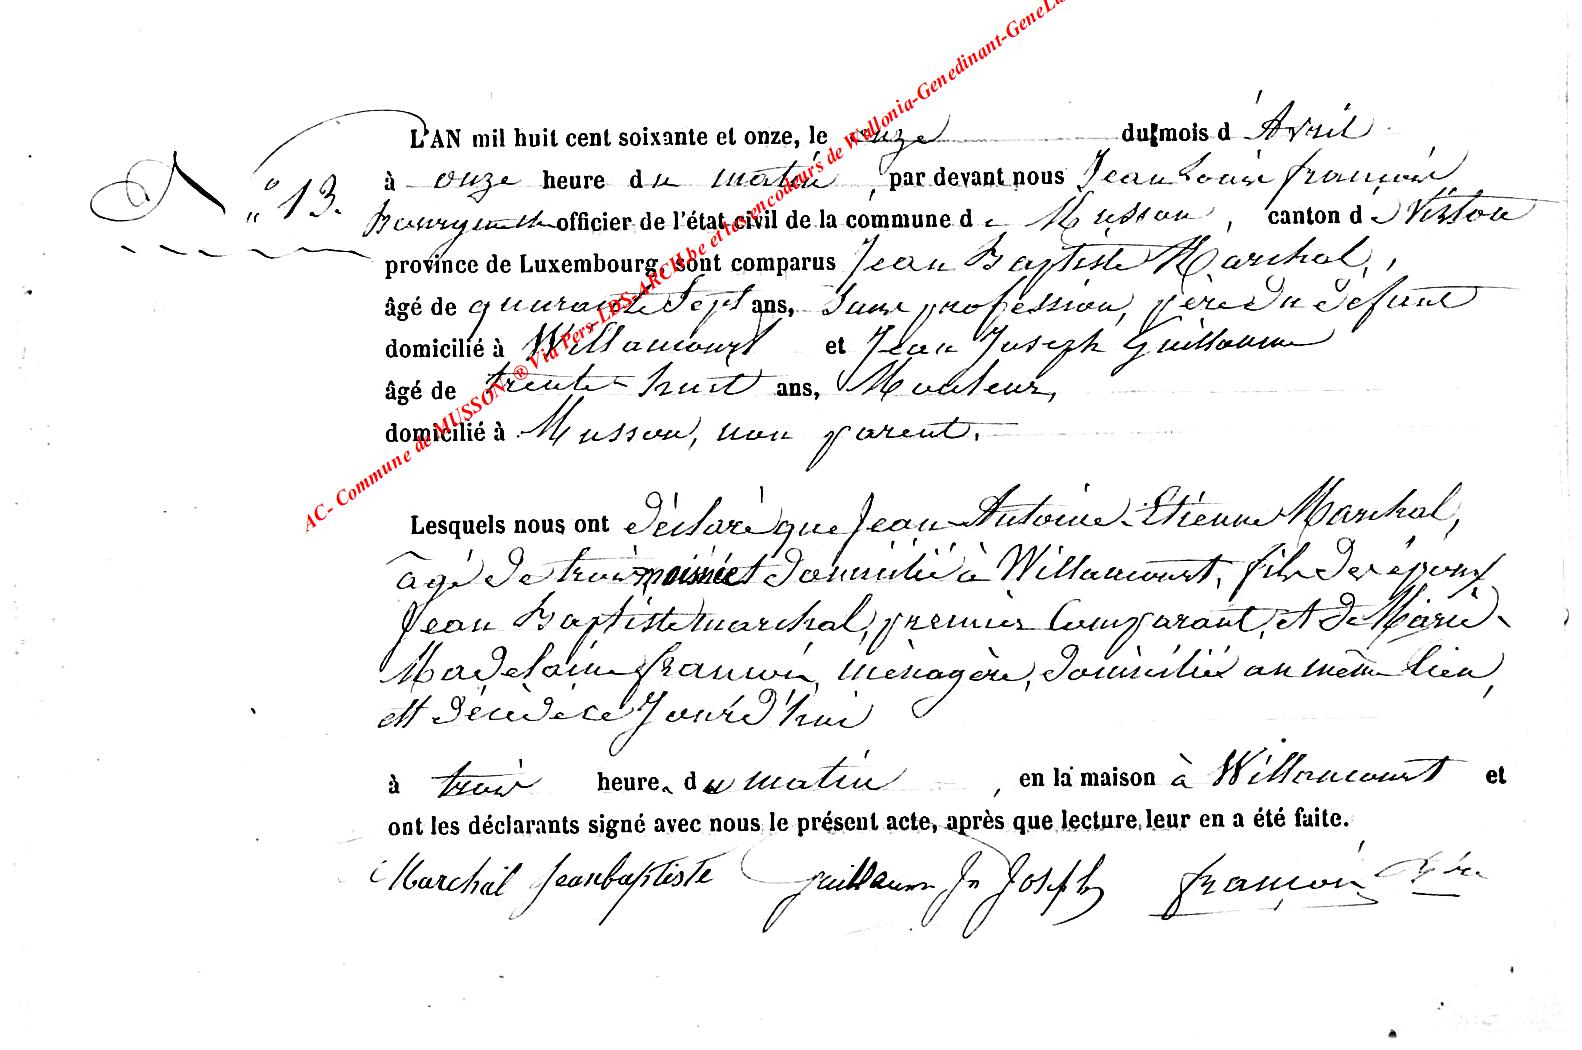 AC- Commune de MUSSON ® Via Pers-LDS-ARCH.be et les encodeurs de Wallonia-Genedinant-GeneLu
N° 13.
L'AN mil huit cent soixante et onze, le onze du mois d'Avril
à onze heure du matin, par devant nous Jean Louis françois
officier de l'état civil de la commune de Musson, canton de Virton
province de Luxembourg, sont comparus Jean Baptiste Marchal,
âgé de quarante sept ans, sans profession, père du défunt
domicilié à Willancourt et Jean Joseph Guillaume
âgé de trente huit ans, Mouleur,
domicilié à Musson, non parent.
Lesquels nous ont déclaré que Jean Antoine Etienne Marchal,
âgé de trois mois et domicilié à Willancourt, fils des époux
Jean Baptiste marchal, premier Comparant, et de Marie
Madelaine françois, ménagère, domiciliés au même lieu,
est décédé ce Jourd'hui
à trois heure du matin, en la maison à Willancourt et
ont les déclarants signé avec nous le présent acte, après que lecture leur en a été faite.
Marchal Jeanbaptiste Guillaume Jn Joseph françois